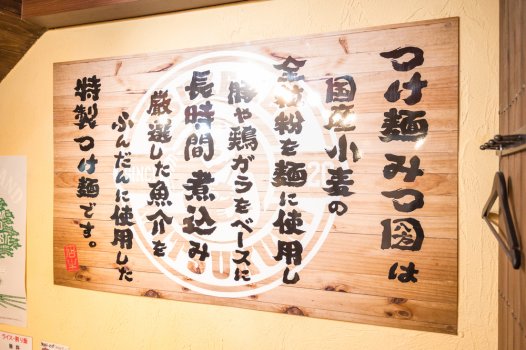 つけ麺みつ圀は
国産小麦の
全粒粉を麺に使用し
豚や鶏ガラをベースに
長時間煮込み
厳選した魚介を
ふんだんに使用した
特製つけ麺です。